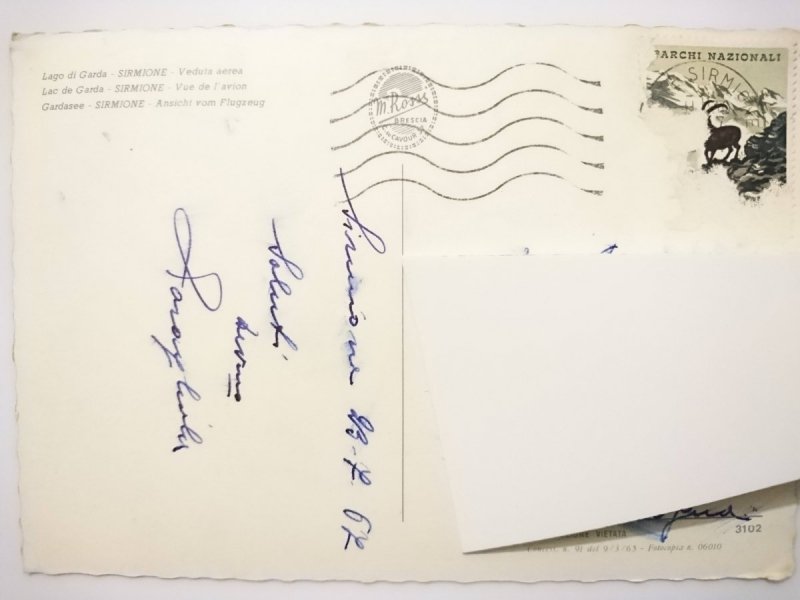 Lago di Garda - SIRMIONE - Veduta aerea
Lac de Garda - SIRMIONE - Vue de l'avion
Gardasee - SIRMIONE - Ansicht vom Flugzeug
M. Rossi
BRESCIA
C. so CAVOUR
PARCHI NAZIONALI
SIRMIONE
Sirmione 23-7-67
Saluti
VIETATA
3102
n. 91 del 9/3/65 - Fotocopia n. 06010